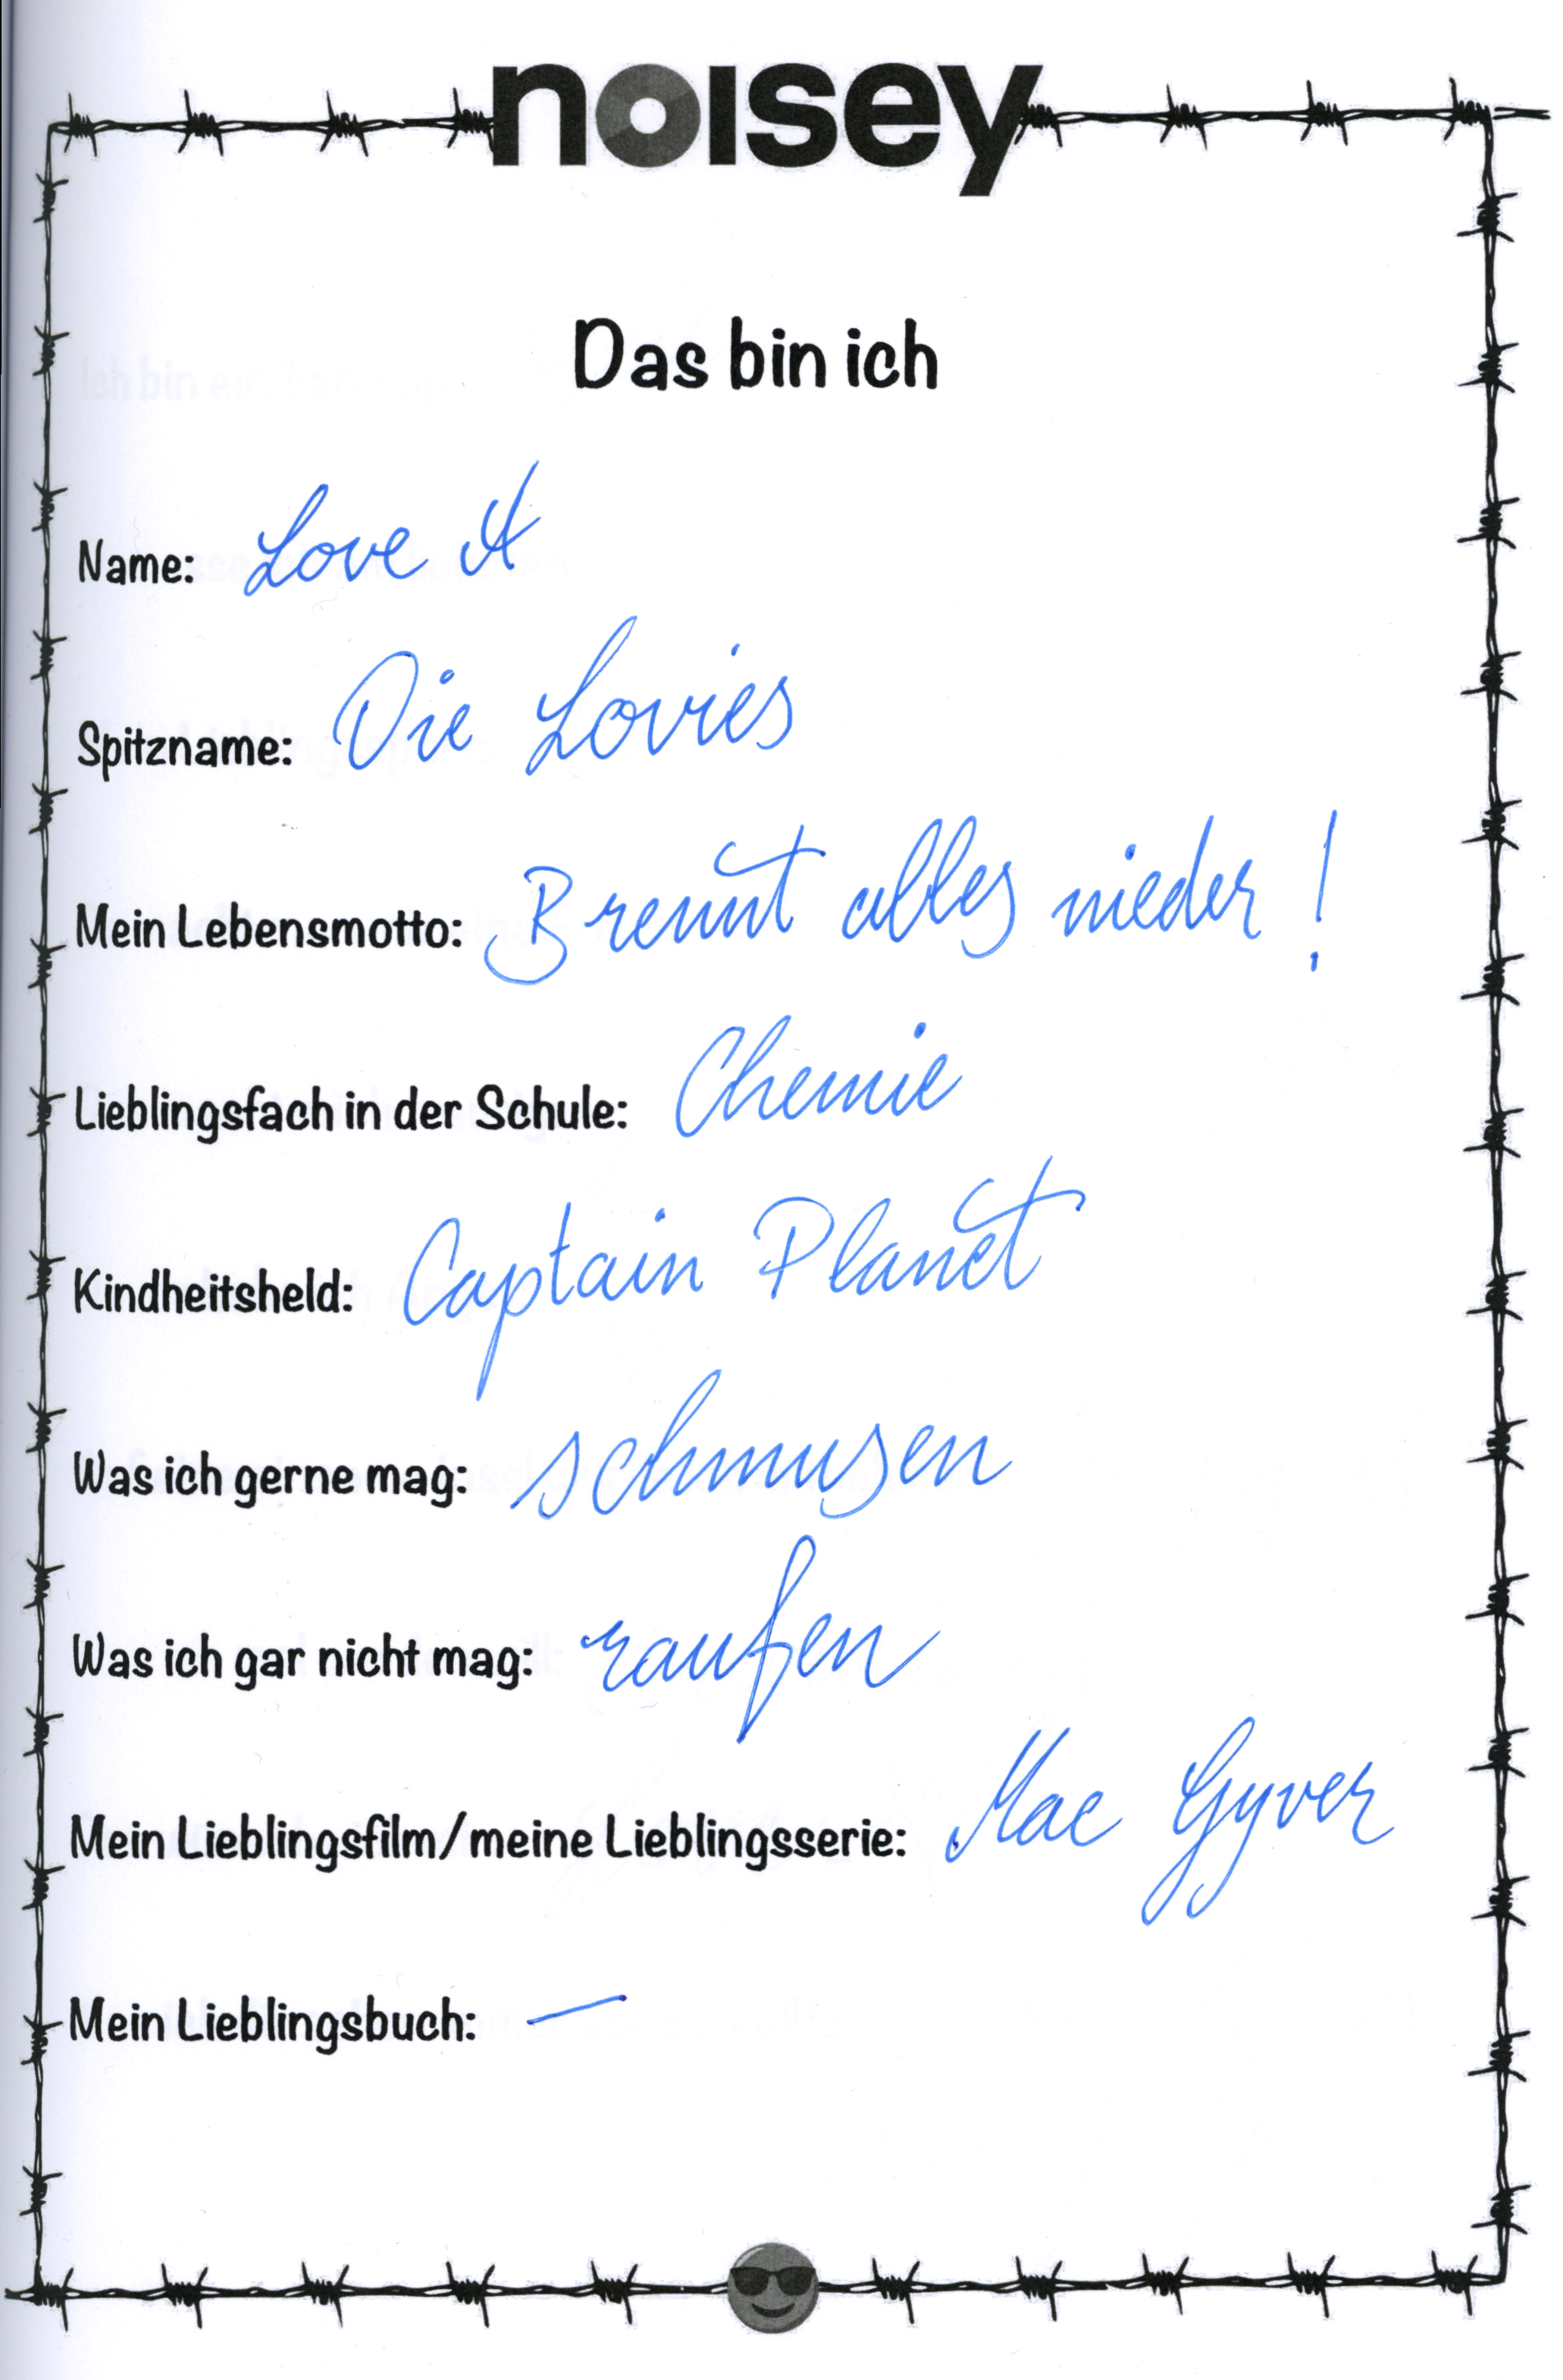 noisey
Das bin ich
Name: Love A
Spitzname: Die Lovies
Mein Lebensmotto: Brennt alles nieder!
Lieblingsfach in der Schule: Chemie
Kindheitsheld: Captain Planet
Was ich gerne mag: schmusen
Was ich gar nicht mag: raufen
Mein Lieblingsfilm/meine Lieblingsserie: Mac Gyver
Mein Lieblingsbuch: —